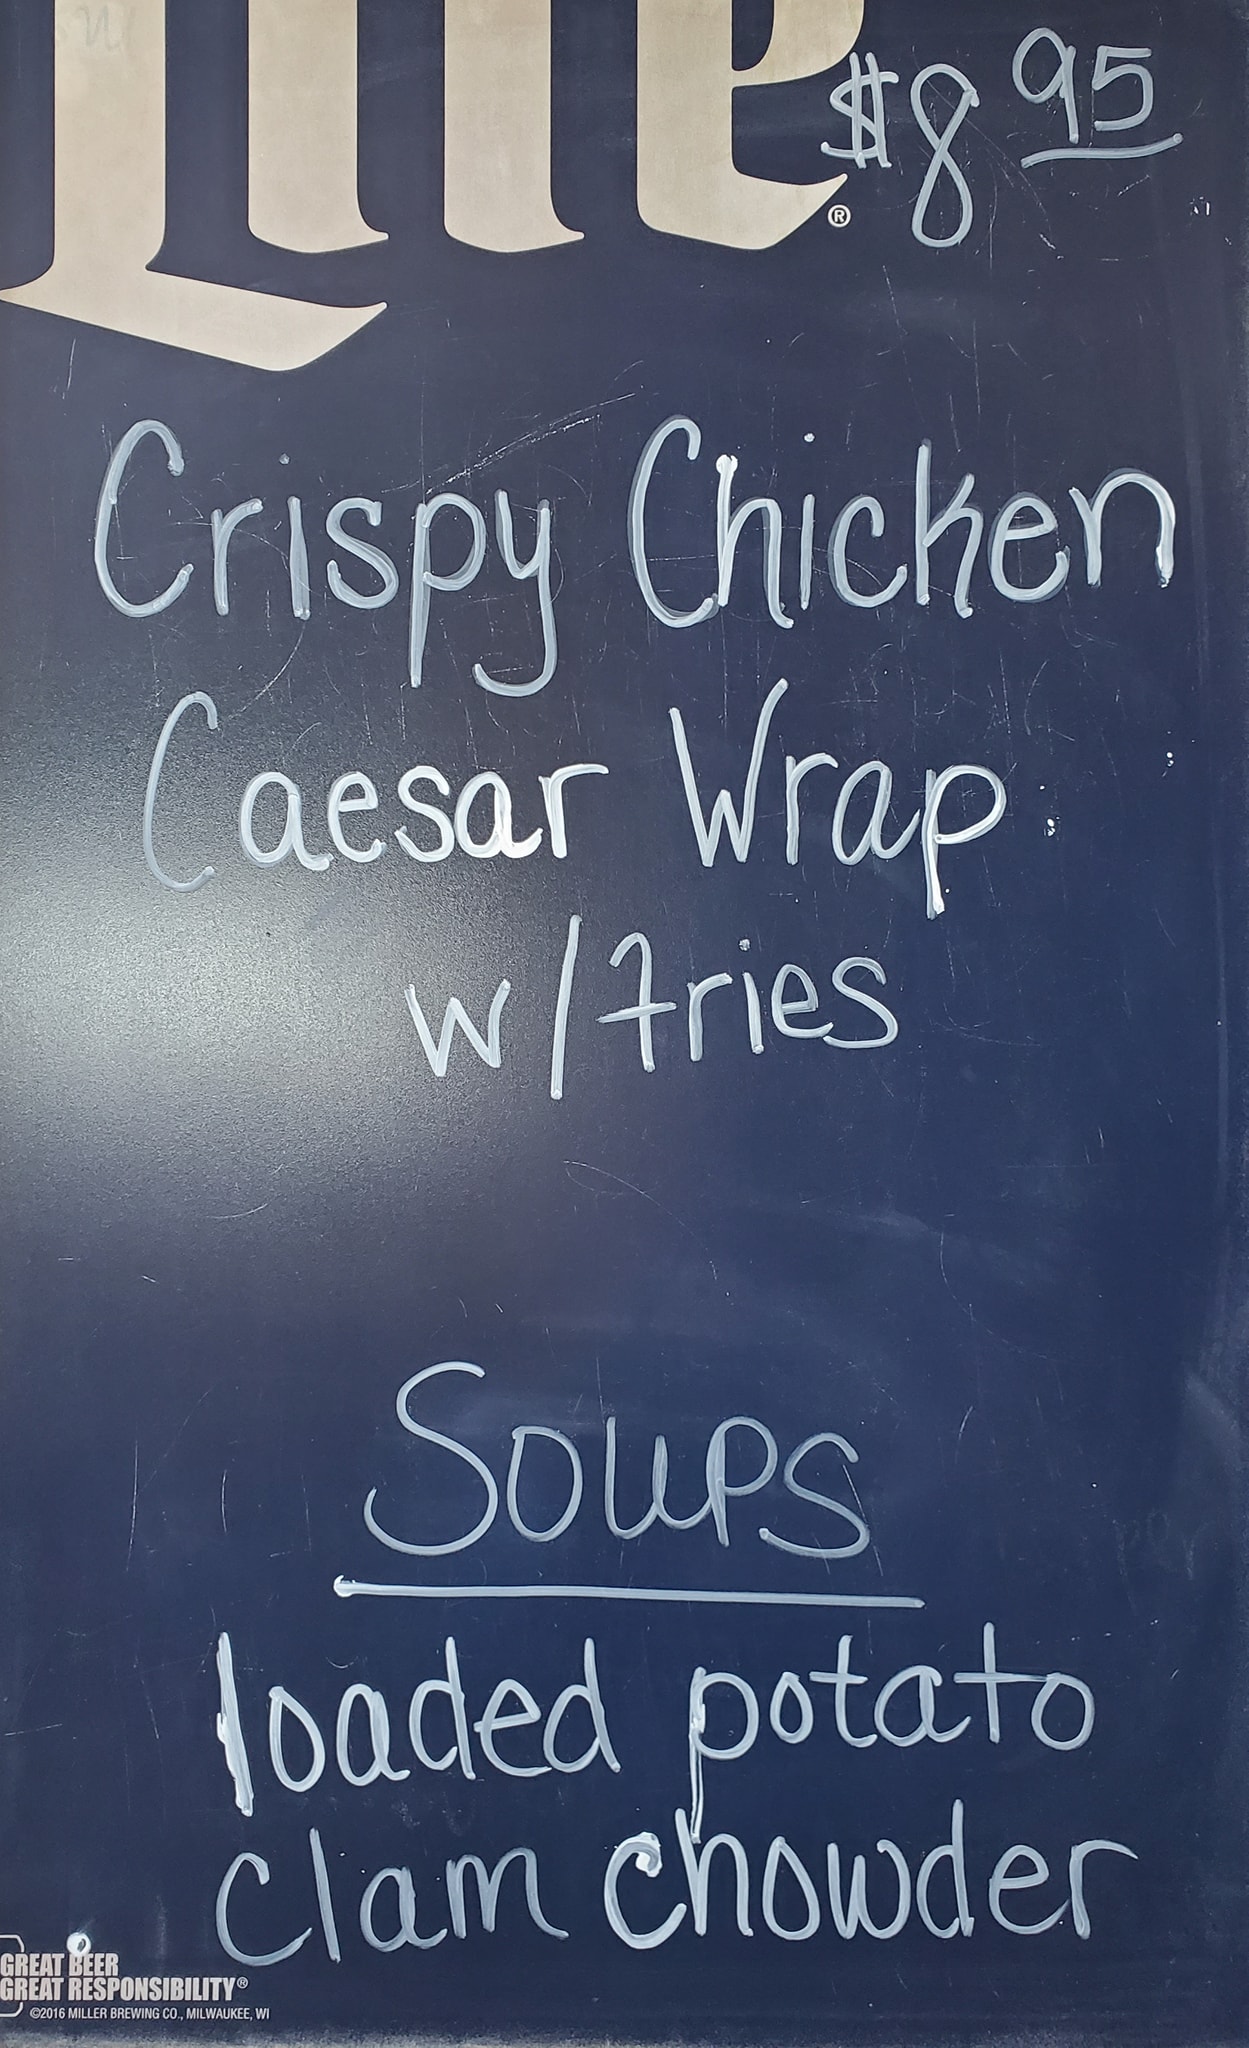 Lite®
$8 95
Crispy Chicken
Caesar Wrap
w/fries
Soups
loaded potato
clam chowder
GREAT BEER
GREAT RESPONSIBILITY®
©2016 MILLER BREWING CO., MILWAUKEE, WI